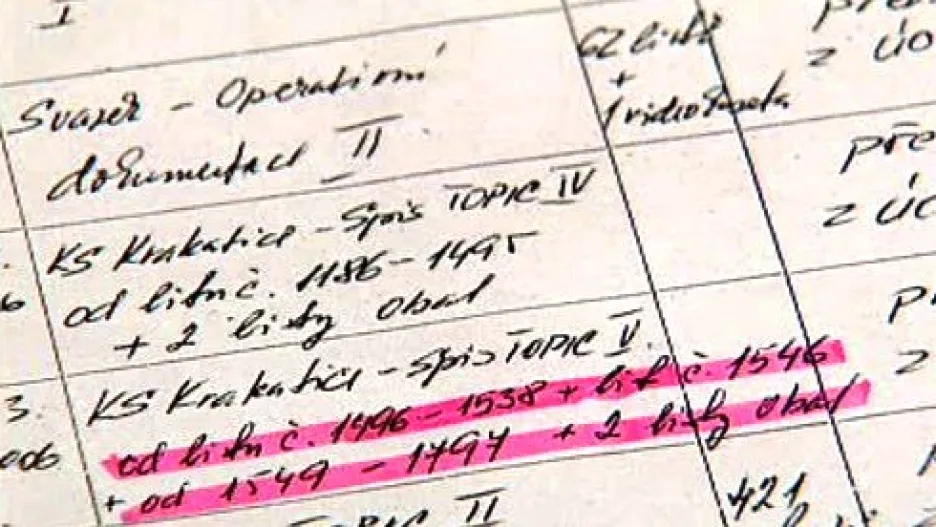 I
Svazek - Operativní
dokumentace II.
62 listů
+
1 videokazeta
z ÚO
KS Krakatice - Spis TOPIC IV
od listu č. 1186 - 1495
+ 2 listy obal
pře
z ÚC
3.
006
KS Krakatice - Spis TOPIC V.
od listu č. 1496 - 1538 + list č. 1546
+ od 1549 - 1797 + 2 listy obal
z
II
421